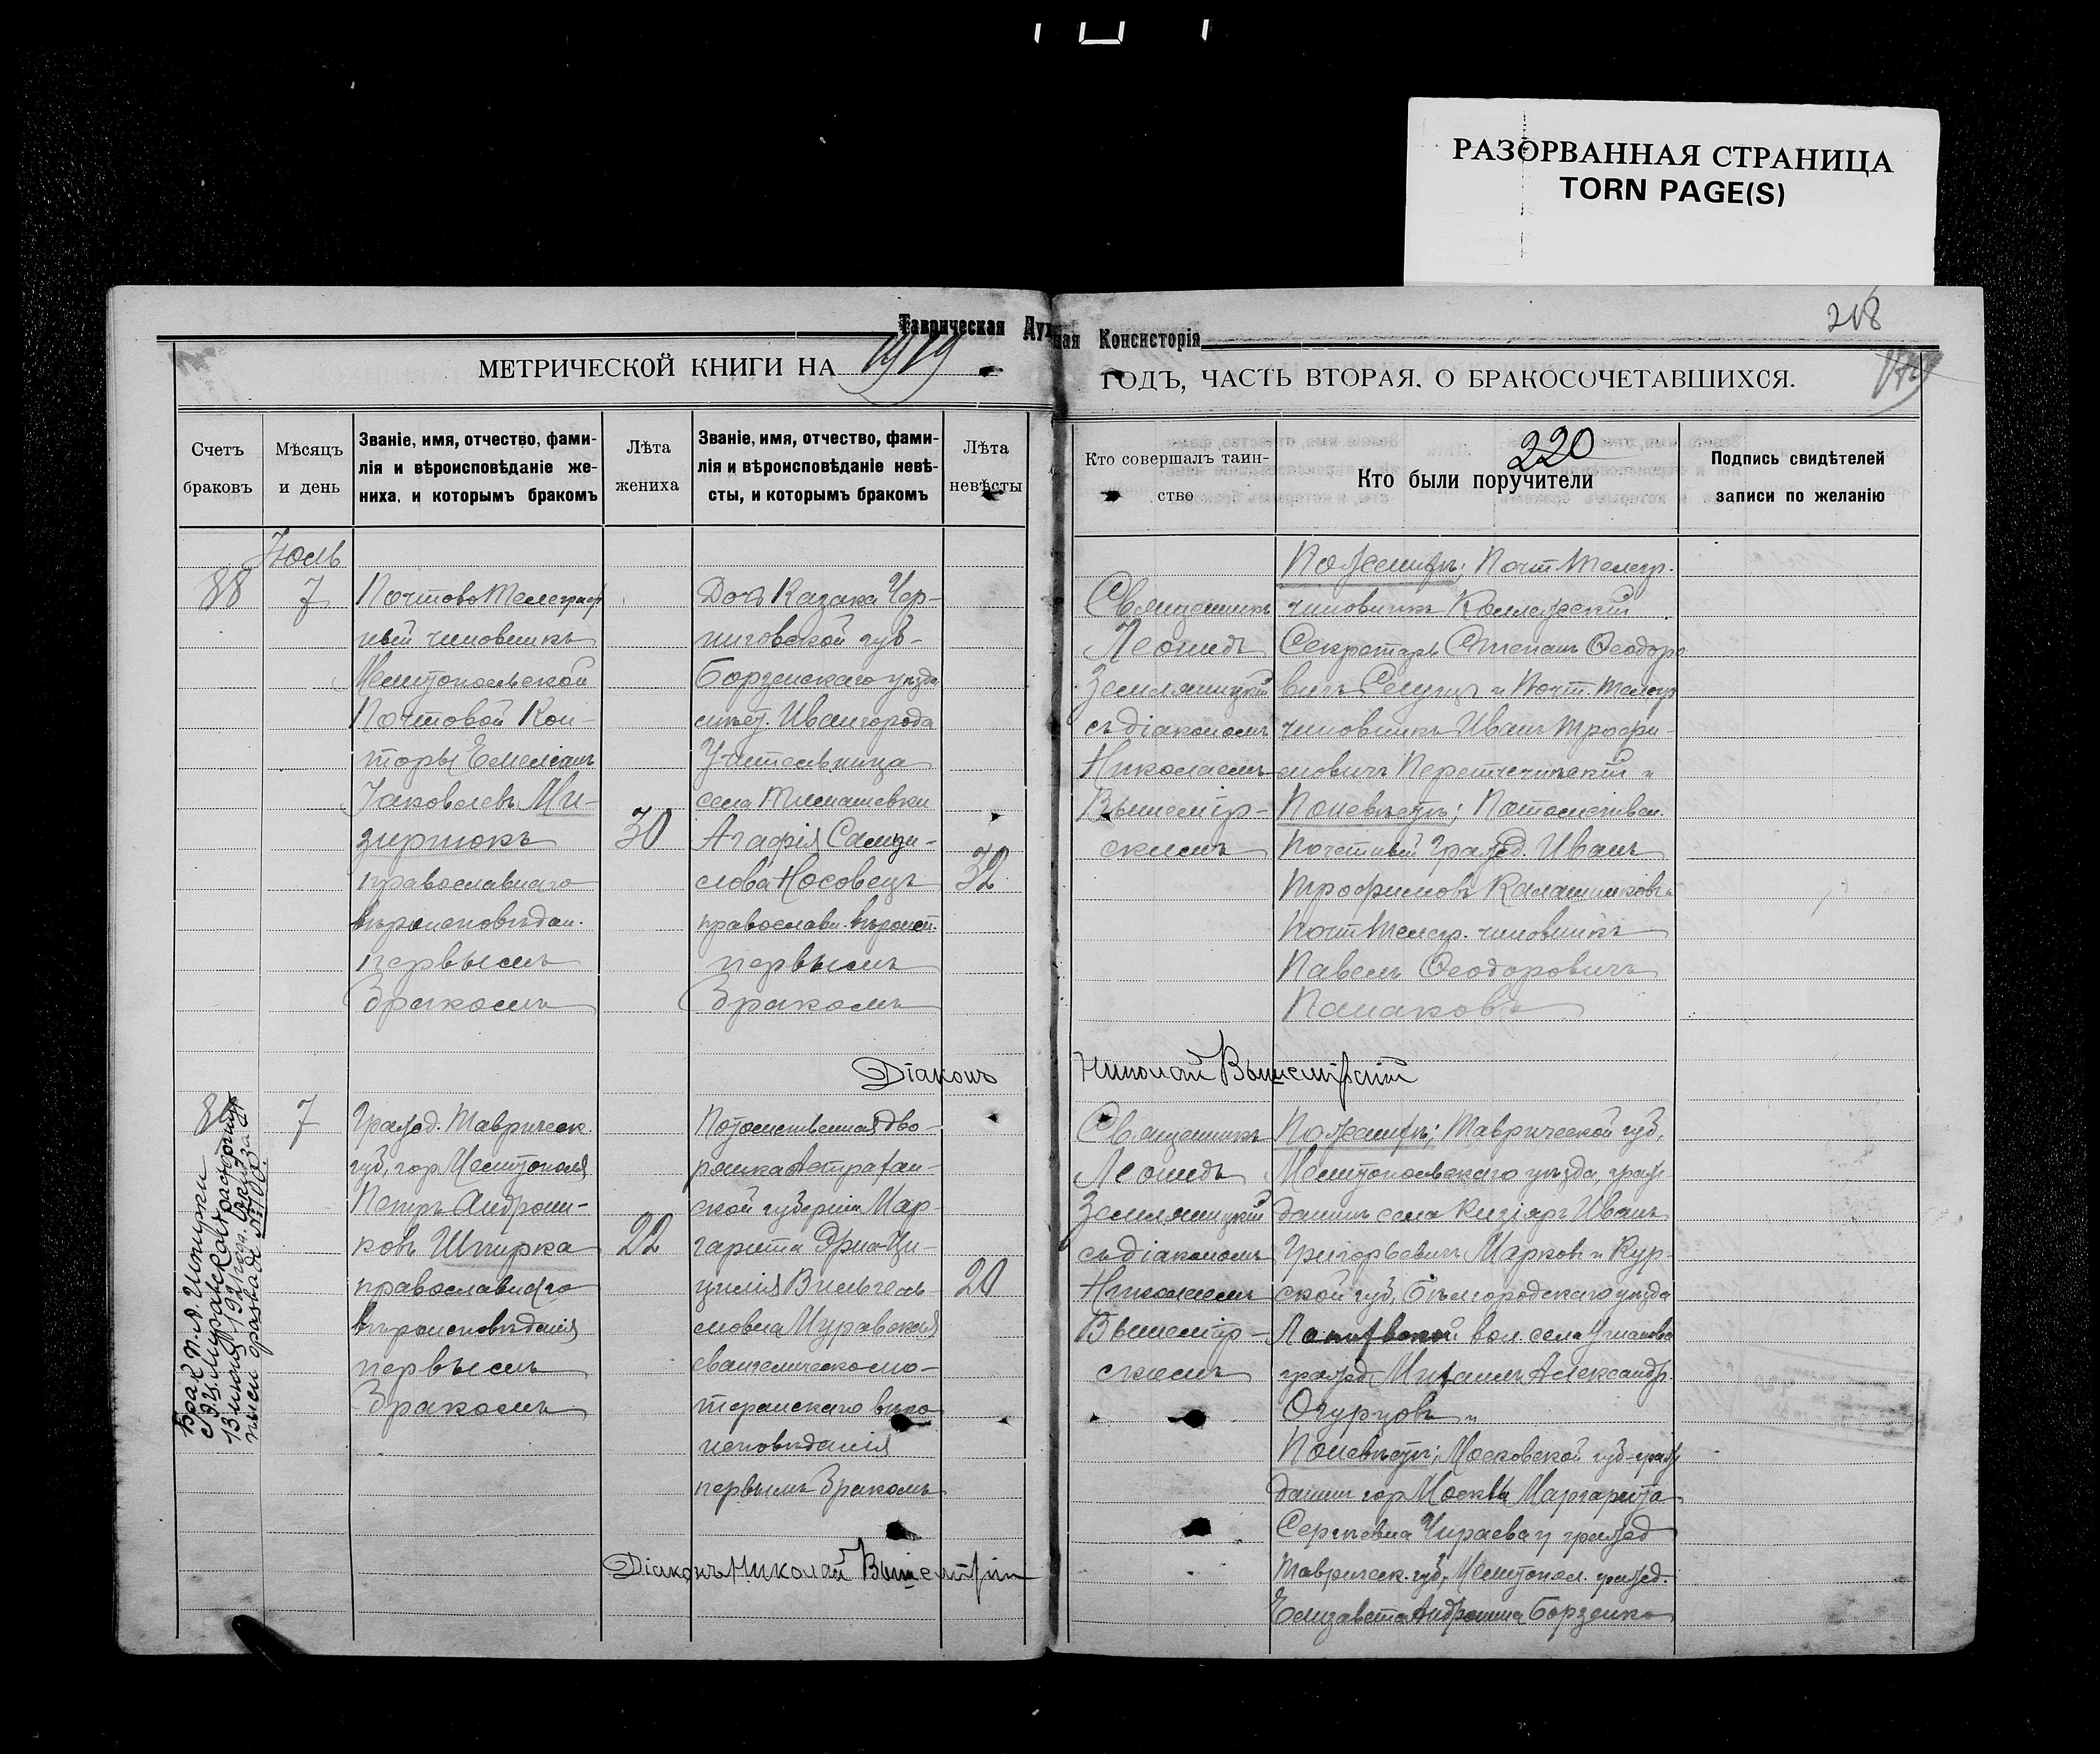 РАЗОРВАННАЯ СТРАНИЦА
TORN PAGE(S)
218
Таврическая Духовная Консисторія
МЕТРИЧЕСКОЙ КНИГИ НА 1919
ГОДЪ, ЧАСТЬ ВТОРАЯ, О БРАКОСОЧЕТАВШИХСЯ.
Счетъ
браковъ
Мѣсяцъ
и день
Званіе, имя, отчество, фами-
лія и вѣроисповѣданіе же-
ниха, и которымъ бракомъ
Лѣта
жениха
Званіе, имя, отчество, фами-
лія и вѣроисповѣданіе невѣ-
сты, и которымъ бракомъ
Лѣта
невѣсты
Кто совершалъ таин-
ство
220
Кто были поручители
Подпись свидѣтелей
записи по желанію
Іюль
88
7
Почтово Телеграф
ный чиновникъ
Мелитопольской
Почтовой Кон-
торы Емеліанъ
Іаковлевъ Ми-
зирюкъ
православнаго
вѣроисповѣдан.
первымъ
бракомъ
30
Дочь Казака Чер-
ниговской губ-
Борзенскаго уѣзда
Ивангорода
Учительница
села Тимашевки
Агафія Самуи-
лова Носовецъ
православн. вѣроисп.
первымъ
бракомъ
32
Священникъ
Леонидъ
Земляницкій
съ діакономъ
Николаемъ
Вышемір-
скимъ
По женихѣ; Почт Телегр.
чиновникъ Коллежскій
Секретарь Степанъ Ѳеодоро
вичъ и Почт. Телегр
чиновникъ Иванъ Трофи-
мовичъ и
По невѣстѣ; Потомствен.
Почетный Гражд. Иванъ
Трофимовъ Калашниковъ и
Почт Телегр. чиновникъ
Павелъ Ѳеодоровичъ
Діаконъ Николай Вышемірскій
89
7
Гражд. Таврическ.
губ, гор Мелитополя
Петръ Андрони-
ковъ Шпирка
православнаго
вѣроисповѣданія
первымъ
бракомъ
22
Потомственная дво-
рянка Астрахан-
ской губерніи Мар-
гарита
цилія Вильгель-
мовна Муравская
евангелическо лю-
теранскаго вѣро
исповѣданія
первымъ бракомъ
20
Священникъ
Леонидъ
Земляницкій
съ діакономъ
Николаемъ
Вышемір-
скимъ
По женихѣ; Таврической губ,
Мелитопольскаго уѣзда, граж-
данинъ села Кизіяръ Иванъ
Григорьевичъ Марковъ и Кур-
ской губ, Бѣлгородскаго уѣзда
вол села
гражд, Михаилъ Александр.
Огурцовъ и
По невѣстѣ; Московской губ-граж
данин гор Москвы Маргарита
Сергѣевна и гражд
Тавричеcк. губ, Мелитопол. гражд.
Елизавета Борзенко
Діаконъ Николай Вышемірскій
Брак П.А. Шпирки
с Э.Ц. Муравской расторгнут
13 июня 192 года.